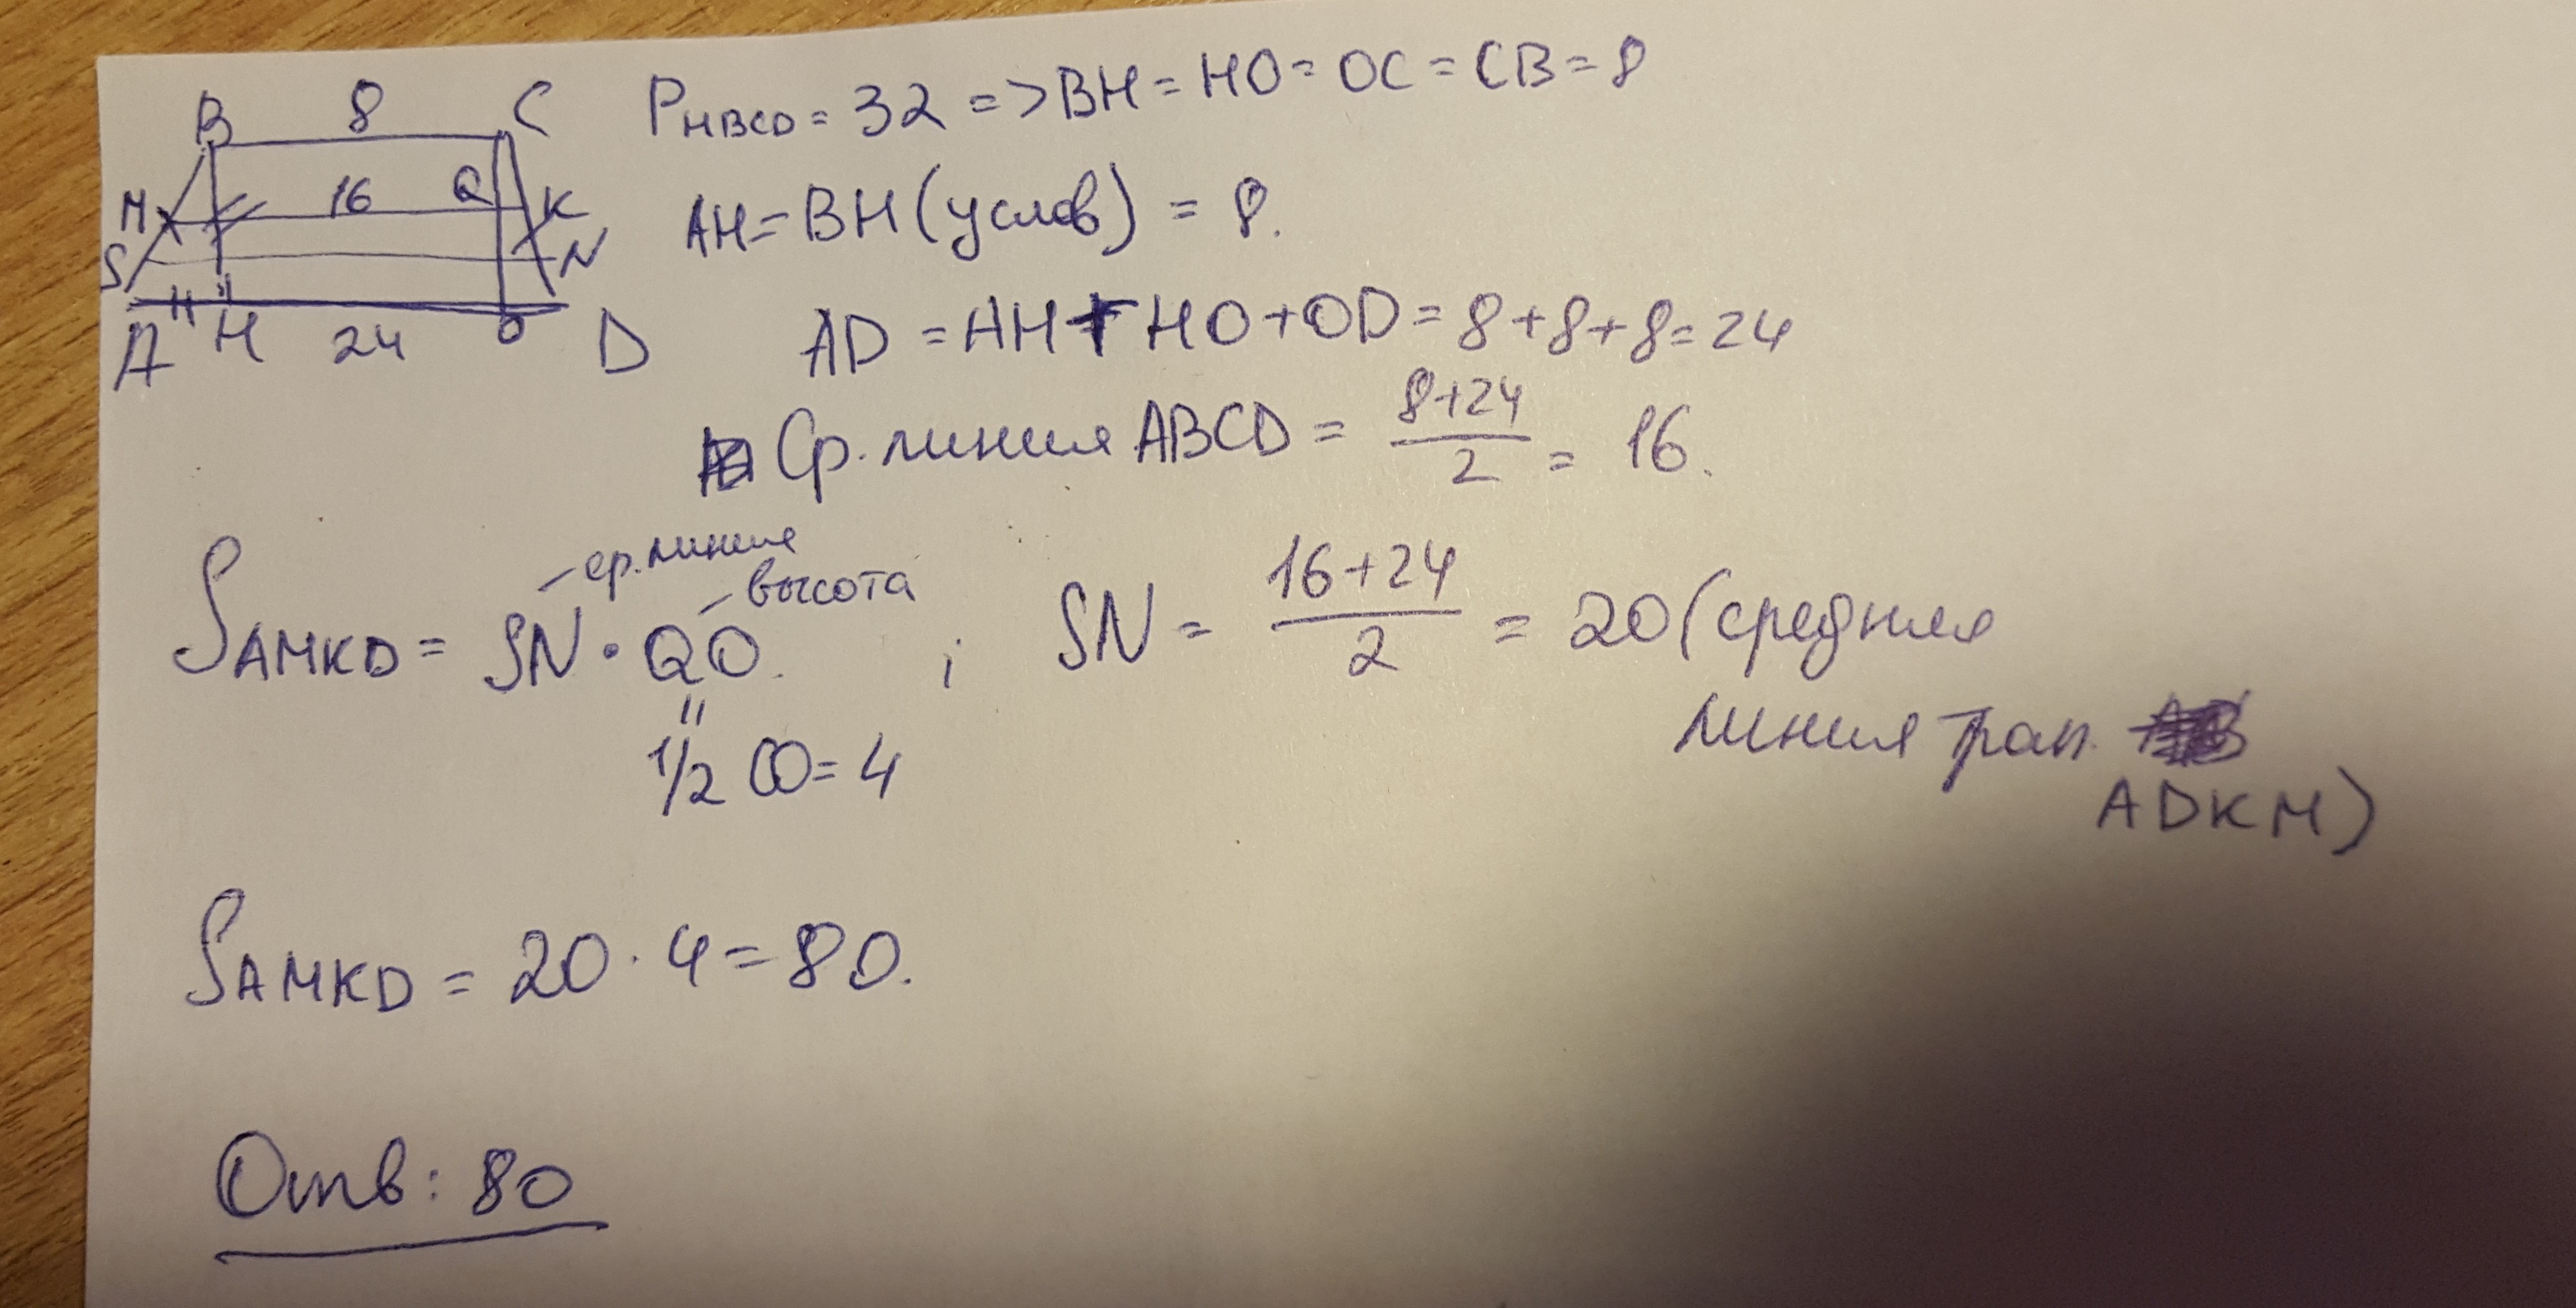 B 8 C
M 16 Q K
S N
A H 24 O D
P HBCO = 32 => BH = HO = OC = CB = 8
AH = BH (услов) = 8.
AD = AH + HO + OD = 8+8+8 = 24
Ср. линия ABCD = 8+24/2 = 16.
- ср. линия
- высота
S AMKD = SN · QO. ; SN = 16+24/2 = 20 (средняя
линия трап.
ADKM)
"
1/2 CO = 4
S AMKD = 20 · 4 = 80.
Отв: 80